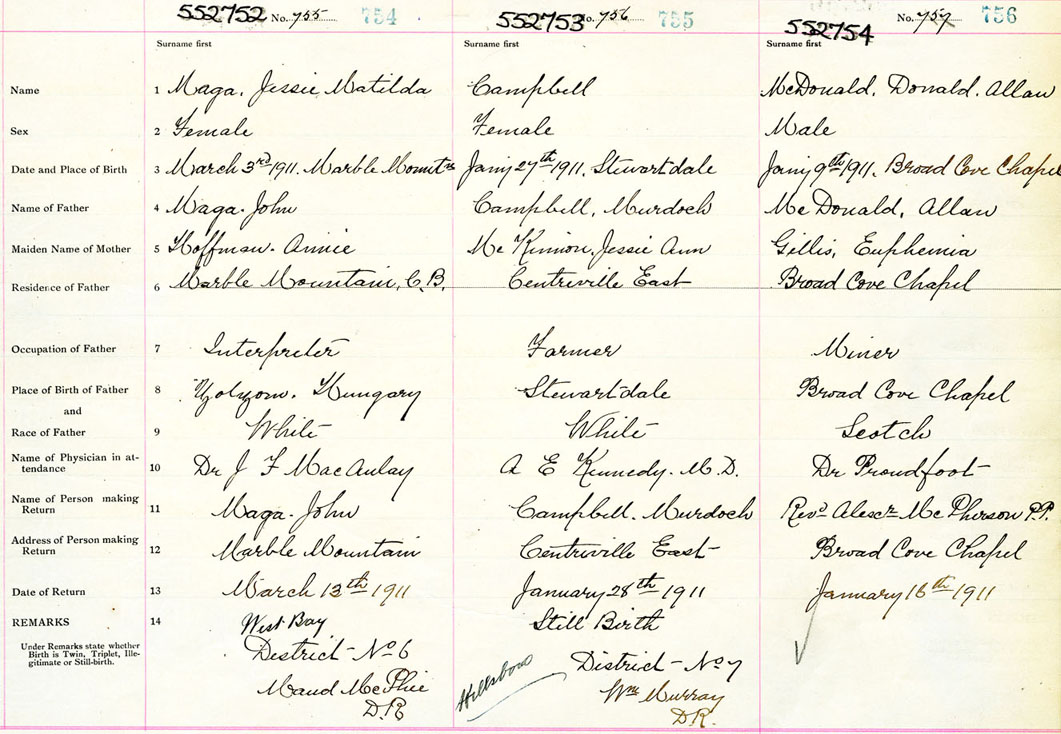 552752 No. 755 754 552753 No. 756 755 552754 No. 757 756
Surname first Surname first Surname first
Name 1 Maga, Jessie Matilda Campbell McDonald, Donald, Allan
Sex 2 Female Female Male
Date and Place of Birth 3 March 3rd 1911. Marble Mount Jany 27th 1911, Stewartdale Jany 9th 1911. Broad Cove Chapel
Name of Father 4 Maga. John Campbell, Murdoch McDonald, Allan
Maiden Name of Mother 5 Hoffman. Annie McKinnon, Jessie Ann Gillis, Euphemia
Residence of Father 6 Marble Mountain, C.B. Centriville East Broad Cove Chapel
Occupation of Father 7 Interpreter Farmer Miner
Place of Birth of Father 8 Hungary Stewartdale Broad Cove Chapel
and
Race of Father 9 White White Scotch
Name of Physician in at-
tendance 10 Dr J F MacAulay A E Kennedy. M.D. Dr Proudfoot
Name of Person making
Return 11 Maga. John Campbell. Murdoch Revd Alexr McPherson P.P.
Address of Person making
Return 12 Marble Mountain Centriville East Broad Cove Chapel
Date of Return 13 March 13th 1911 January 28th 1911 January 16th 1911
REMARKS 14 West Bay Still Birth
Under Remarks state whether
Birth is Twin, Triplet, Ille-
gitimate or Still-birth.
District No 6 Hillsboro District No 7
Maud McPhie Wm Murray
D.R. D.R.